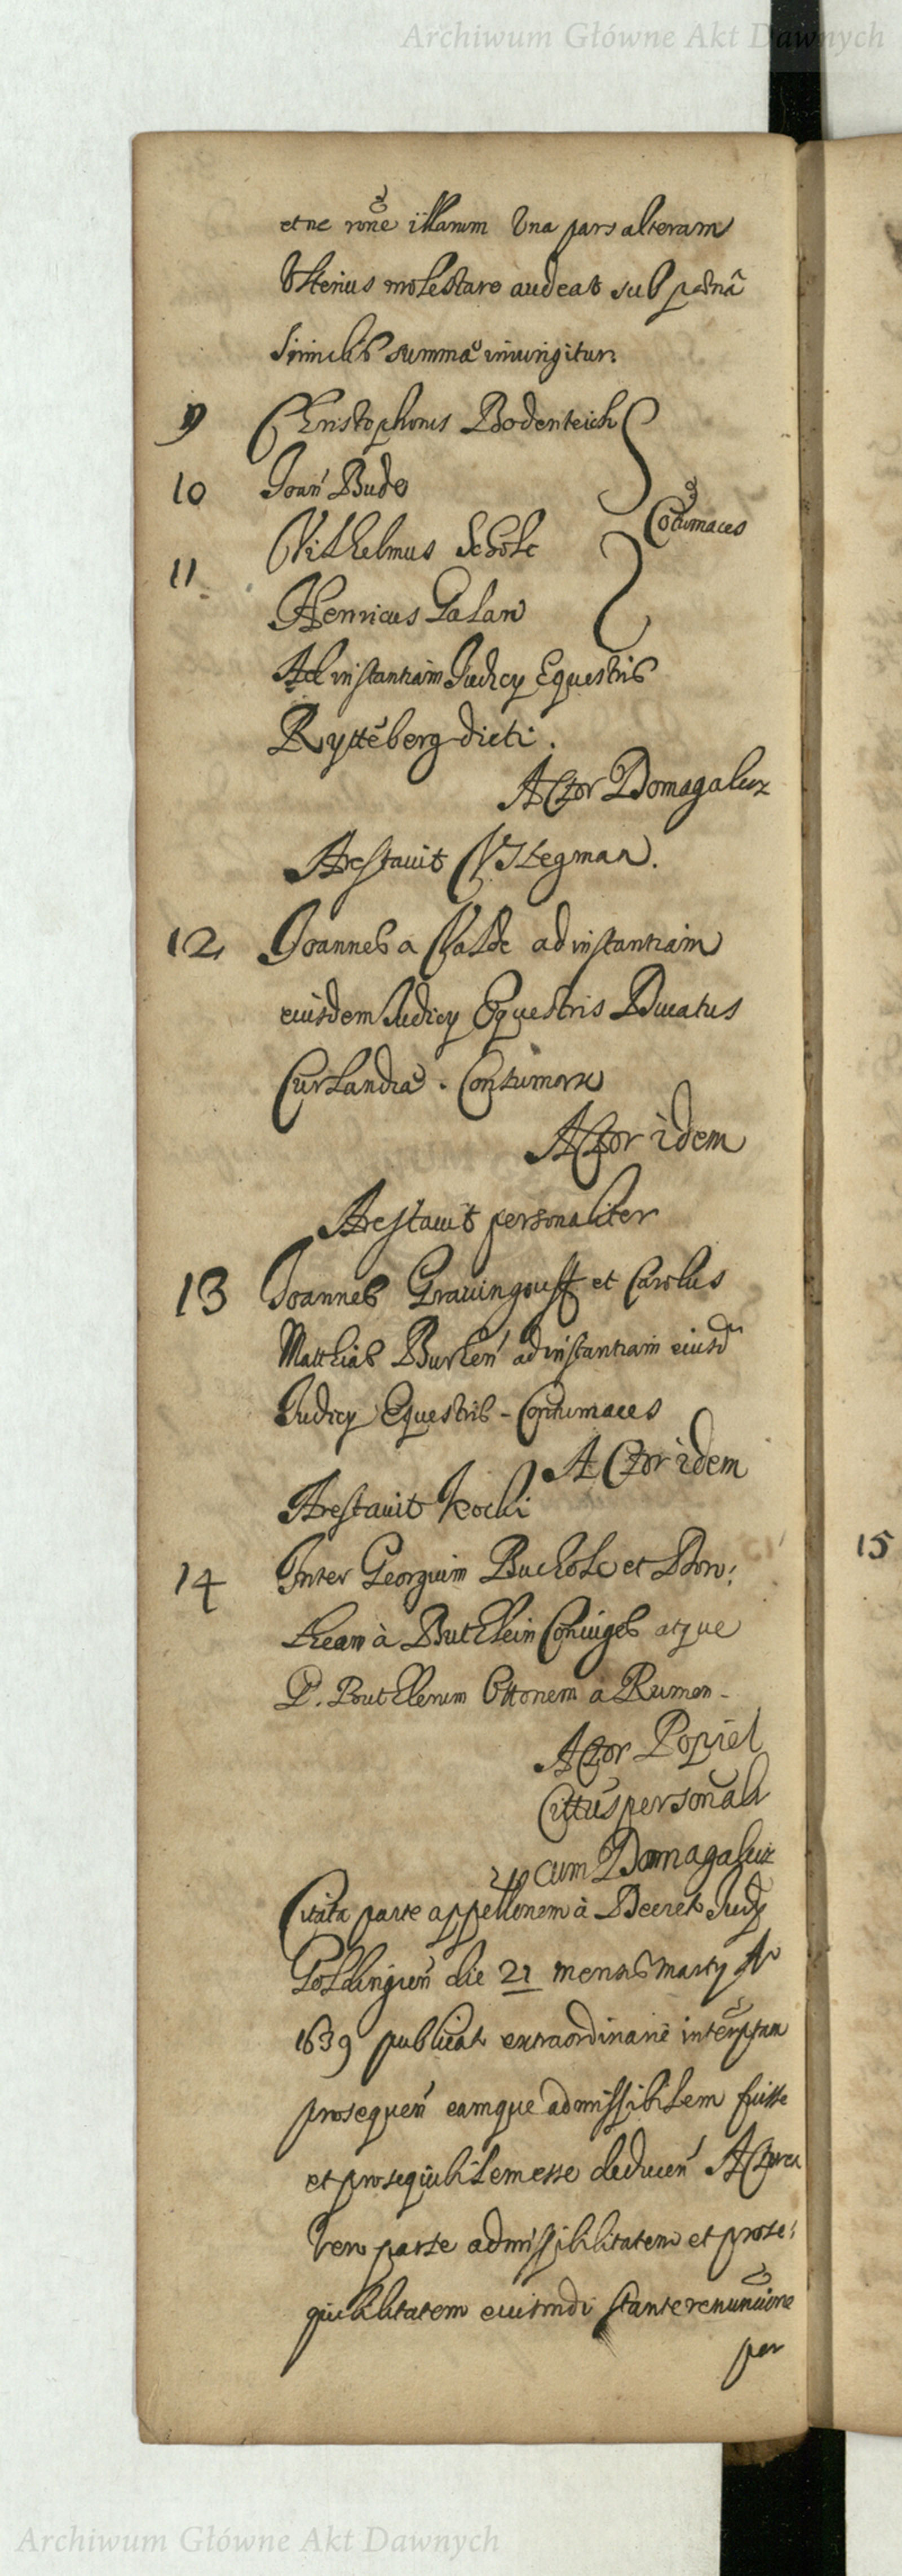 Archiwum Główne Akt Dawnych
et ne rōne illarum Una pars alteram
Ulterius molestare audeat sub pœnâ
similis summæ iniungitur.
9 Christophorus Bodenteich
10 Joan Budo
Contumaces
11 Wilhelmus Scholc
Henricus Galan
Ad instantiam Judicy Equestris
Rytteberg dicti.
Actor Domagalicz
Arestavit Stegman.
12 Joannes a ad instantiam
eiusdem Judicy Equestris Ducatus
Curlandiæ. Contumax
Actor idem
Arestavit personaliter
13 Joannes et Carolus
Matthias ad instantiam eiusd
Judicy Equestris - Contumaces
Actor idem
Arestavit Kochi
14 Inter Georgium Bucholc et Doro:
theam à Butlein Coniuges atque
D. Ottonem a
Actor Popiel
personali
cum Domagalicz
Citata parte appellōnem à Decret Judy
Goldingen die 21 mensis Marty Aº
1639 publicat extraordinarie
prosequen eamque admissibilem fuisse
et prosequibilem esse deducen
Vero parte admissibilitatem et prose:
quibilitatem eiusmdi stante renunciōne
per
15
Archiwum Główne Akt Dawnych